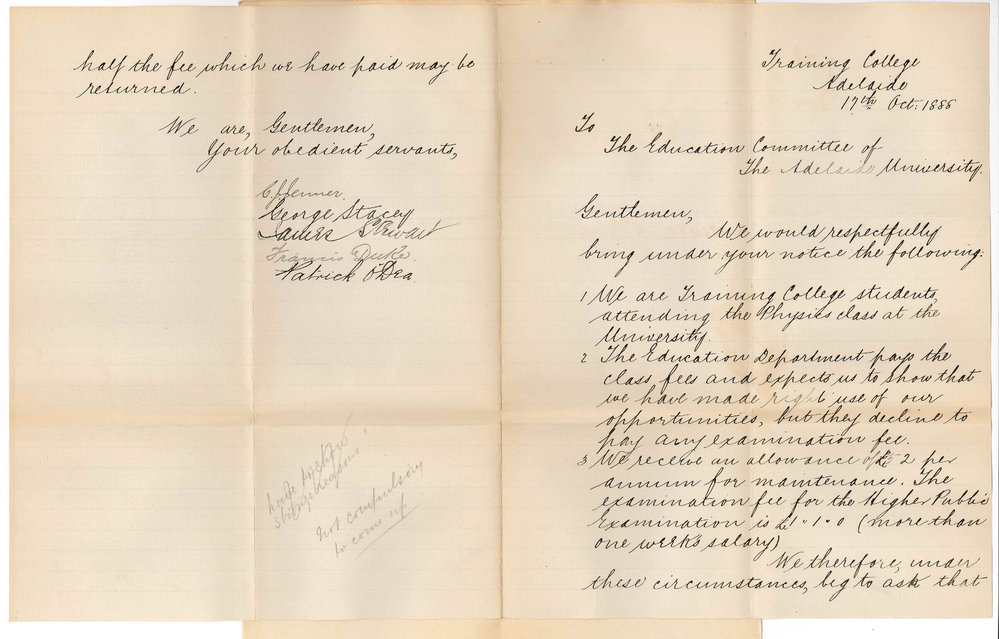 Training College
Adelaide
17th Oct. 1886
To
The Education Committee of
The Adelaide University.
Gentlemen,
We would respectfully
bring under your notice the following:
1 We are Training College students,
attending the Physics class at the
University.
2 The Education Department pays the
class fees and expects us to show that
we have made right use of our
opportunities, but they decline to
pay any examination fee.
3 We receive an allowance of £52 per
annum for maintenance. The
examination fee for the Higher Public
Examination is £1" 1" 0 (more than
one week's salary)
We therefore, under
these circumstances, beg to ask that
half the fee which we have paid may be
returned.
We are, Gentlemen,
Your obedient servants,
George Stacey
James Stewart
Francis Duke.
Patrick O'Dea.
not compulsory
to come up